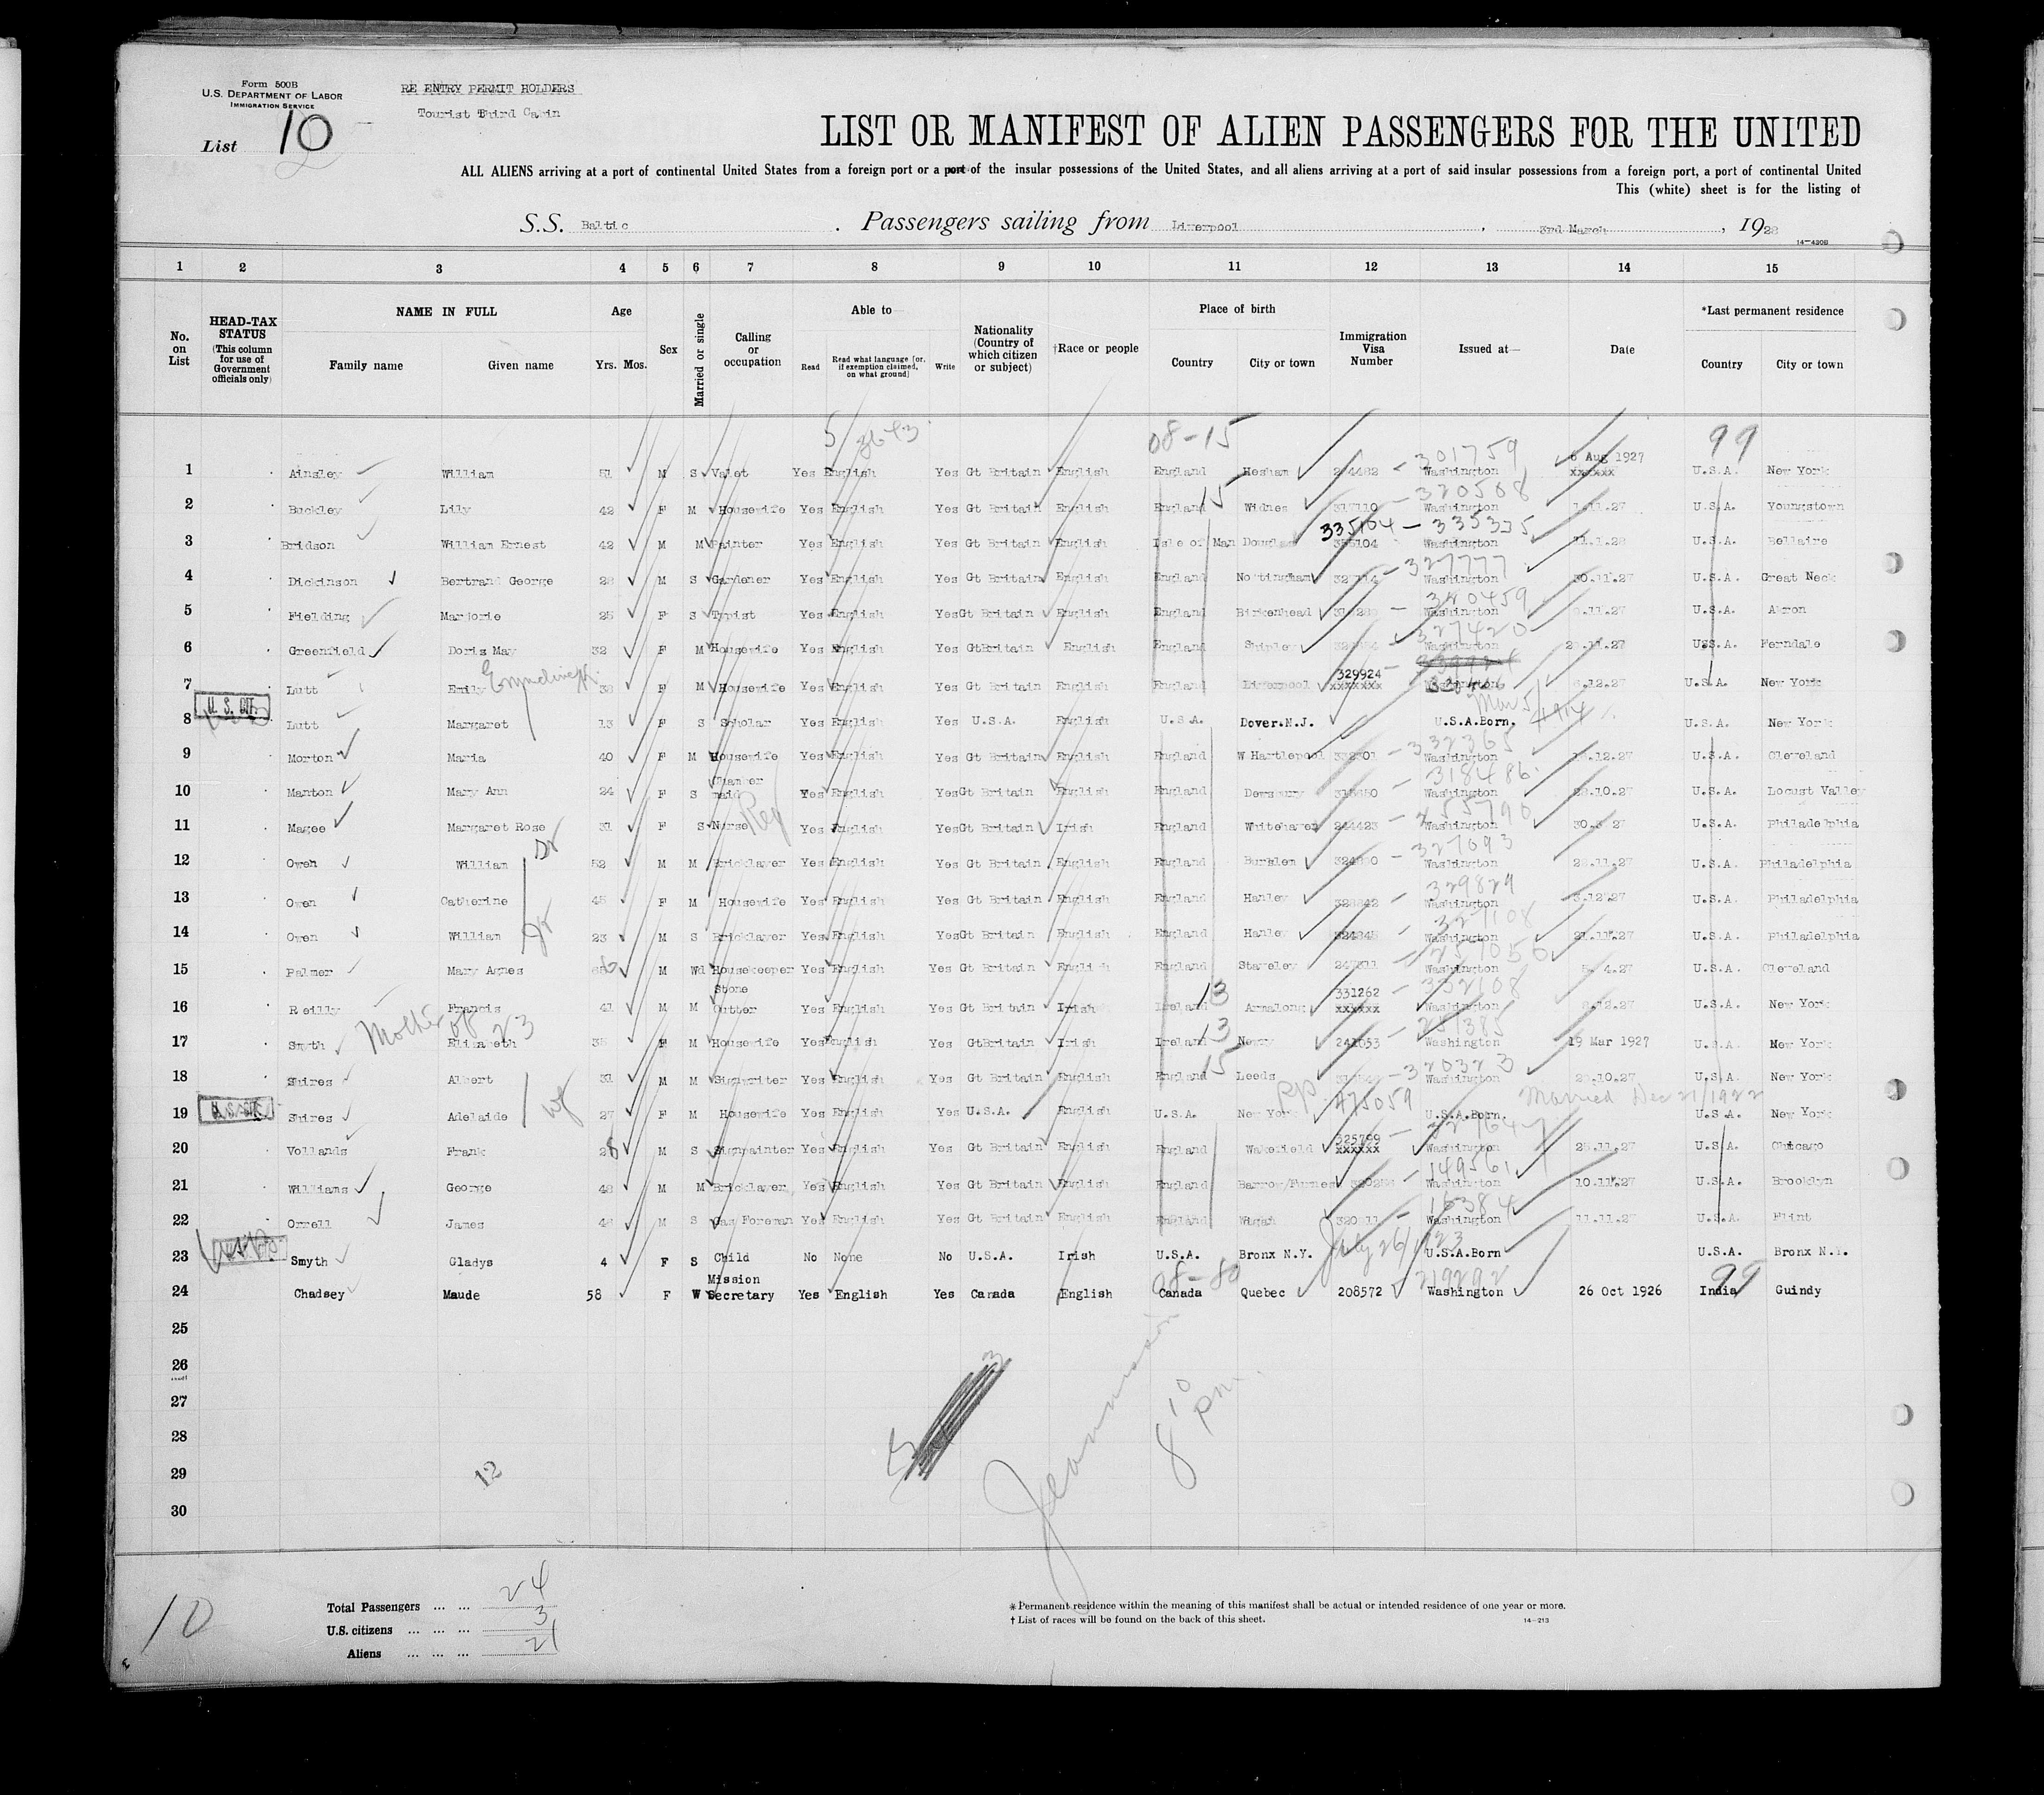 Form 500B
U.S. DEPARTMENT OF LABOR
IMMIGRATION SERVICE
RE ENTRY PERMIT HOLDERS
Tourist Third Cabin
List 10
LIST OR MANIFEST OF ALIEN PASSENGERS FOR THE UNITED
ALL ALIENS arriving at a port of continental United States from a foreign port or a port of the insular possessions of the United States, and all aliens arriving at a port of said insular possessions from a foreign port, a port of continental United
This (white) sheet is for the listing of
S.S. Baltic . Passengers sailing from Liverpool , 3rd March , 1928
14—430B
1 2 3 4 5 6 7 8 9 10 11 12 13 14 15
No. on List
HEAD-TAX STATUS (This column for use of Government officials only)
NAME IN FULL
Family name Given name
Age
Yrs. Mos.
Sex
Married or single
Calling or occupation
Able to—
Read Read what language [or, if exemption claimed, on what ground] Write
Nationality (Country of which citizen or subject)
†Race or people
Place of birth
Country City or town
Immigration Visa Number
Issued at—
Date
*Last permanent residence
Country City or town
08-15 99
1 Ainsley William 51 M S Valet Yes English Yes Gt Britain English England Hesham - 301759 Washington 6 Aug 1927 xxxxxx U.S.A. New York
2 Buckley Lily 42 F M Housewife Yes English Yes Gt Britain English England 15 Widnes - 320508 Washington U.S.A. Youngstown
3 Bridson William Ernest 42 M M Painter Yes English Yes Gt Britain English Isle of Man Douglas 335104 - 335335 Washington 11.1.28 U.S.A. Bellaire
4 Dickinson Bertrand George 28 M S Gardener Yes English Yes Gt Britain English England Nottingham - 327777 Washington 30.11.27 U.S.A. Great Neck
5 Fielding Marjorie 25 F S Typist Yes English Yes Gt Britain English England Birkenhead - 320459 Washington U.S.A. Akron
6 Greenfield Doris May 32 F M Housewife Yes English Yes GtBritain English England Shipley - 327420 Washington U.S.A. Ferndale
7 Lutt Emily F M Housewife Yes English Yes Gt Britain English England Liverpool 329924 xxxxxxx Washington U.S.A. New York
U. S. CIT.
8 Lutt Margaret 13 F S Scholar Yes English Yes U.S.A. English U.S.A. Dover.N.J. U.S.A.Born. Mar 5/1914 U.S.A. New York
9 Morton Maria 40 F M Housewife Yes English Yes Gt Britain English England W Hartlepool - 332365 Washington U.S.A. Cleveland
10 Manton Mary Ann 24 F S Chamber maid Yes English Yes Gt Britain English England Dewsbury - 318486 Washington U.S.A. Locust Valley
11 Magee Margaret Rose 31 F S Nurse Yes English Yes Gt Britain Irish England Whitehaven 244423 Washington U.S.A. Philadelphia
12 Owen William Sr 52 M M Bricklayer Yes English Yes Gt Britain English England Burslem - 327093 Washington U.S.A. Philadelphia
13 Owen Catherine 45 F M Housewife Yes English Yes Gt Britain English England Hanley - 329829 Washington U.S.A. Philadelphia
14 Owen William Jr 23 M S Bricklayer Yes English Yes Gt Britain English England Hanley - 327108 Washington 21.11.27 U.S.A. Philadelphia
15 Palmer Mary Agnes M Wd Housekeeper Yes English Yes Gt Britain English England Staveley - 257050 Washington U.S.A. Cleveland
16 Reilly Francis 41 M M Stone Cutter Yes English Yes Gt Britain Irish Ireland 13 Annalong 331262 xxxxxx - 332108 Washington U.S.A. New York
Mother of 23
17 Smyth Elizabeth F M Housewife Yes English Yes GtBritain Irish Ireland 13 Newry 241653 - 251385 Washington 19 Mar 1927 U.S.A. New York
18 Shires Albert 31 M M Signwriter Yes English Yes Gt Britain English England 15 Leeds - 320323 Washington U.S.A. New York
19 Shires Adelaide wf 27 F M Housewife Yes English Yes U.S.A. English U.S.A. New York 475059 U.S.A.Born. Married Dec 21/1922 U.S.A. New York
20 Vollands Frank 28 M S Signpainter Yes English Yes Gt Britain English England Wakefield 325799 xxxxxx Washington 25.11.27 U.S.A. Chicago
21 Williams George 48 M M Bricklayer Yes English Yes Gt Britain English England Barrow/Furness - 149561 Washington 10.11.27 U.S.A. Brooklyn
22 Orrell James M S Gas Foreman Yes English Yes Gt Britain English England Wigan Washington 11.11.27 U.S.A. Flint
23 Smyth Gladys 4 F S Child No None No U.S.A. Irish U.S.A. Bronx N.Y. July 26/1923 U.S.A.Born U.S.A. Bronx N.Y.
24 Chadsey Maude 58 F W Mission Secretary Yes English Yes Canada English 08-80 Canada Quebec 208572 219292 Washington 26 Oct 1926 India 99 Guindy
25
26
27
28
29
30
12
8 10 pm.
10
Total Passengers ... ... 24
U.S. citizens ... ... ... 3
Aliens ... ... ... 21
* Permanent residence within the meaning of this manifest shall be actual or intended residence of one year or more.
† List of races will be found on the back of this sheet.
14—213